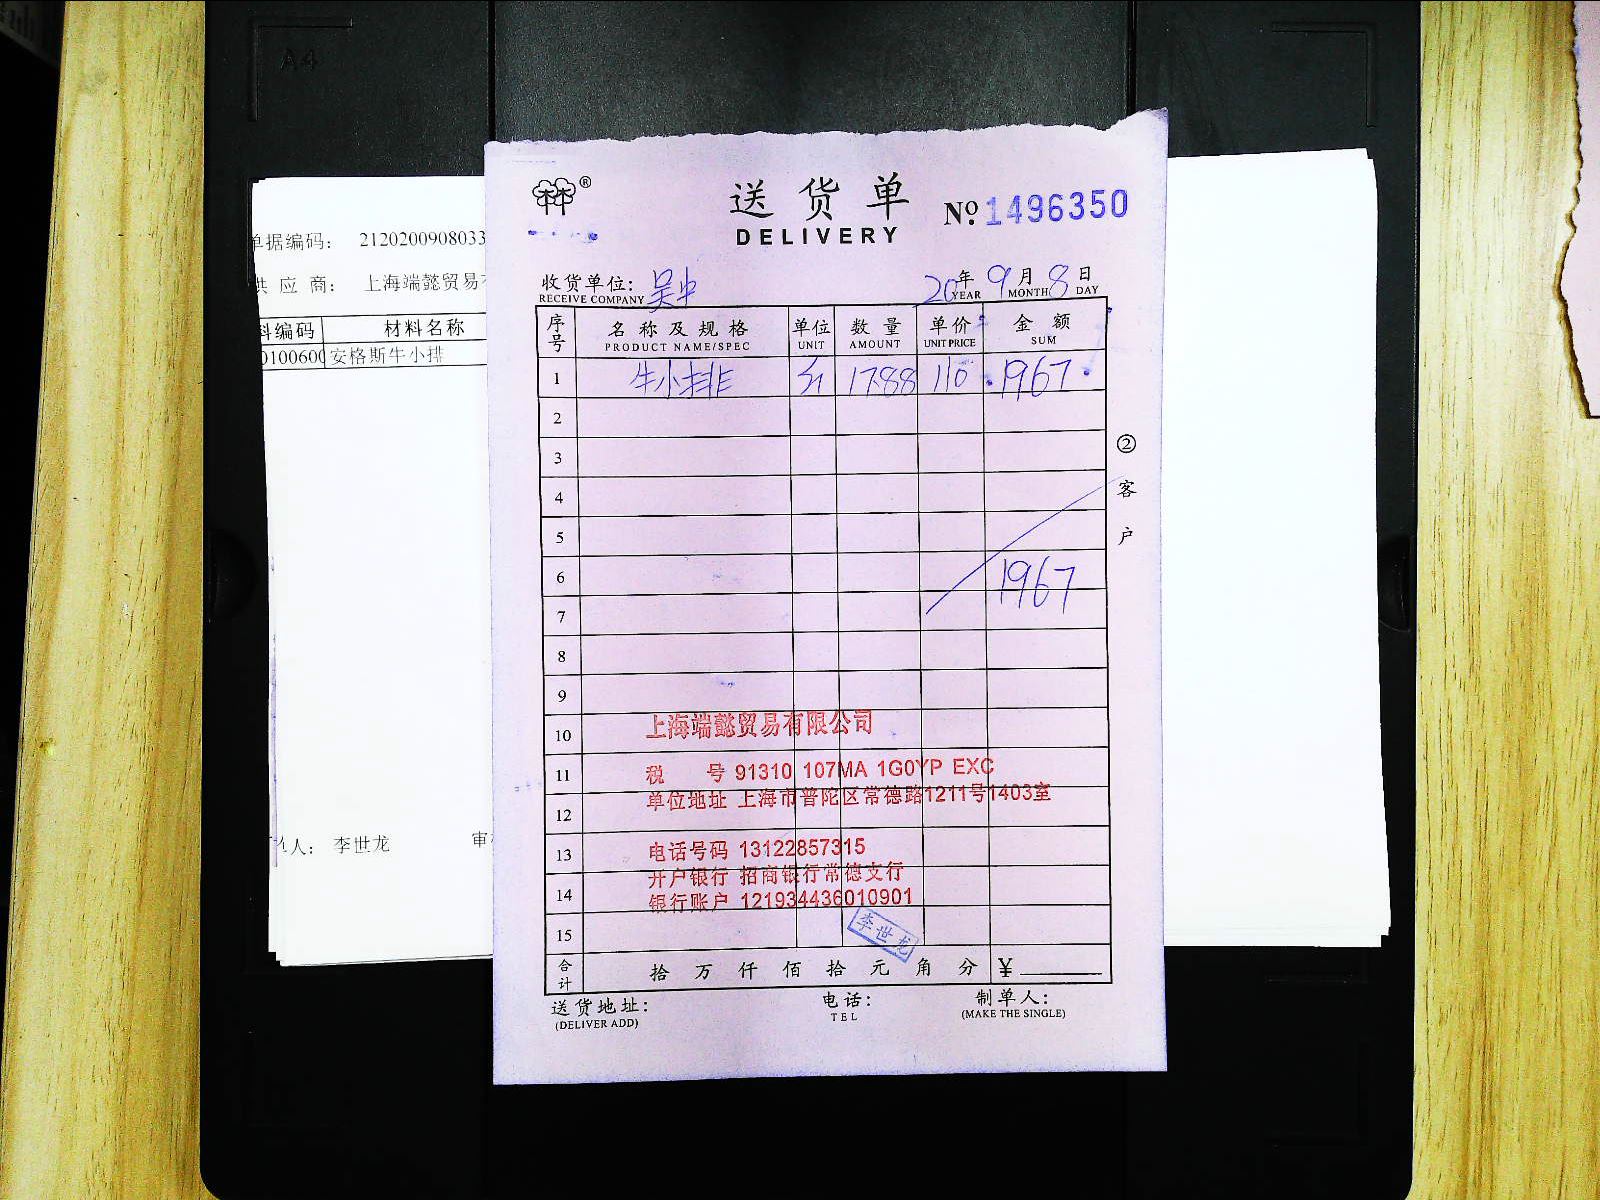 A4
单据编码： 2120200908033
供 应 商： 上海端懿贸易有
料编码 材料名称
0100600 安格斯牛小排
单人： 李世龙 审
送货单
DELIVERY
№ 1496350
收货单位： 吴中
RECEIVE COMPANY
20年 9月 8日
YEAR MONTH DAY
序号 名称及规格 单位 数量 单价 金额
PRODUCT NAME/SPEC UNIT AMOUNT UNIT PRICE SUM
1 牛小排 斤 17.88 110 1967
2
3
4
5
6 1967
7
8
9
10
11
12
13
14
15
上海端懿贸易有限公司
税 号 91310 107MA 1G0YP EXC
单位地址 上海市普陀区常德路1211号1403室
电话号码 13122857315
开户银行 招商银行常德支行
银行账户 121934436010901
李世龙
合计 拾 万 仟 佰 拾 元 角 分 ¥
送货地址： 电话： 制单人：
(DELIVER ADD) TEL (MAKE THE SINGLE)
② 客户